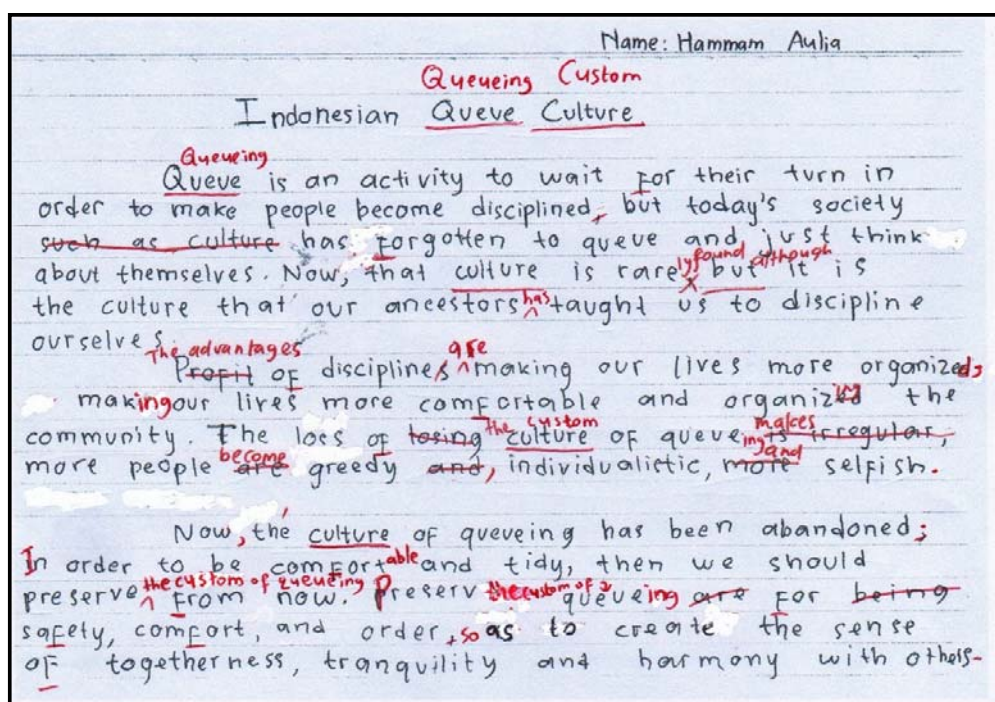 Name: Hammam Aulia
Queueing Custom
Indonesian Queue Culture
Queueing
Queue is an activity to wait for their turn in
order to make people become disciplined, but today's society
such as culture has forgotten to queue and just think
lyfound although
about themselves. Now, that culture is rare but it is
the culture that our ancestors has taught us to discipline
ourselves
The advantages are
Profit of discipline making our lives more organized,
making our lives more comfortable and organizing the
the custom makes
community. The loss of losing culture of queueing is irregular,
become and
more people are greedy and, individualistic, more selfish.
Now, the culture of queueing has been abandoned;
In order to be comfortable and tidy, then we should
the custom of queueing the custom of
preserve from now. Preserv queueing are for being
safety, comfort, and order, so as to create the sense
of togetherness, tranquility and harmony with others-